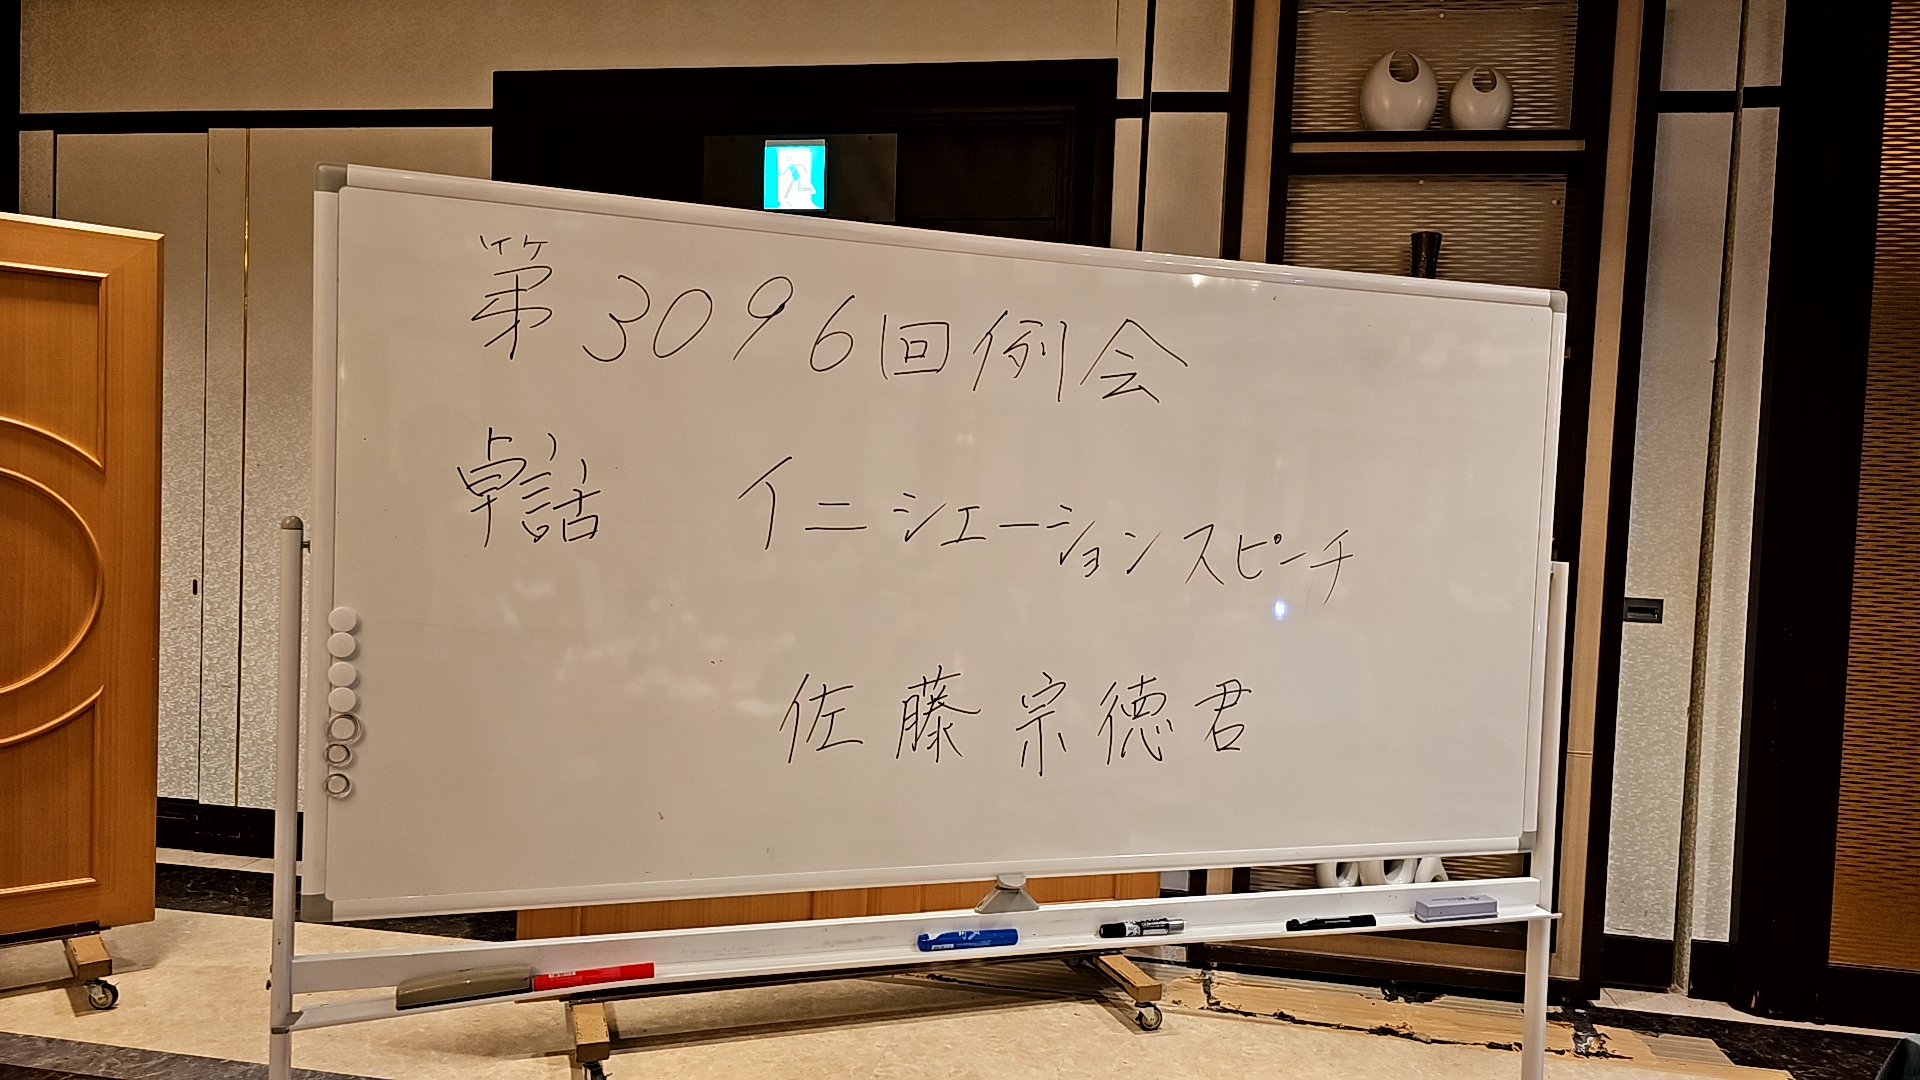 第3096回例会
卓話 イニシエーションスピーチ
佐藤宗徳君